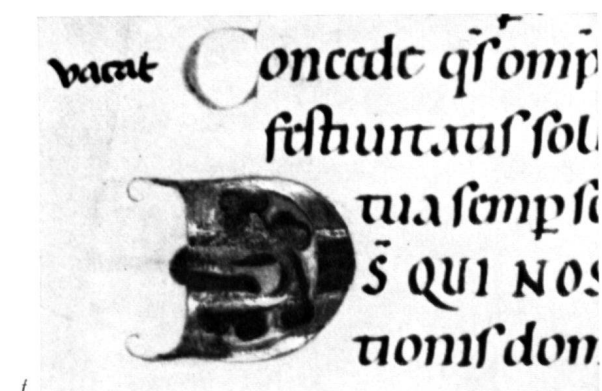 vacat Concede qs̄ omp̄
festiuitatis sol
tua semp̱ sc
DS̄ QUI NOS
tionis dom